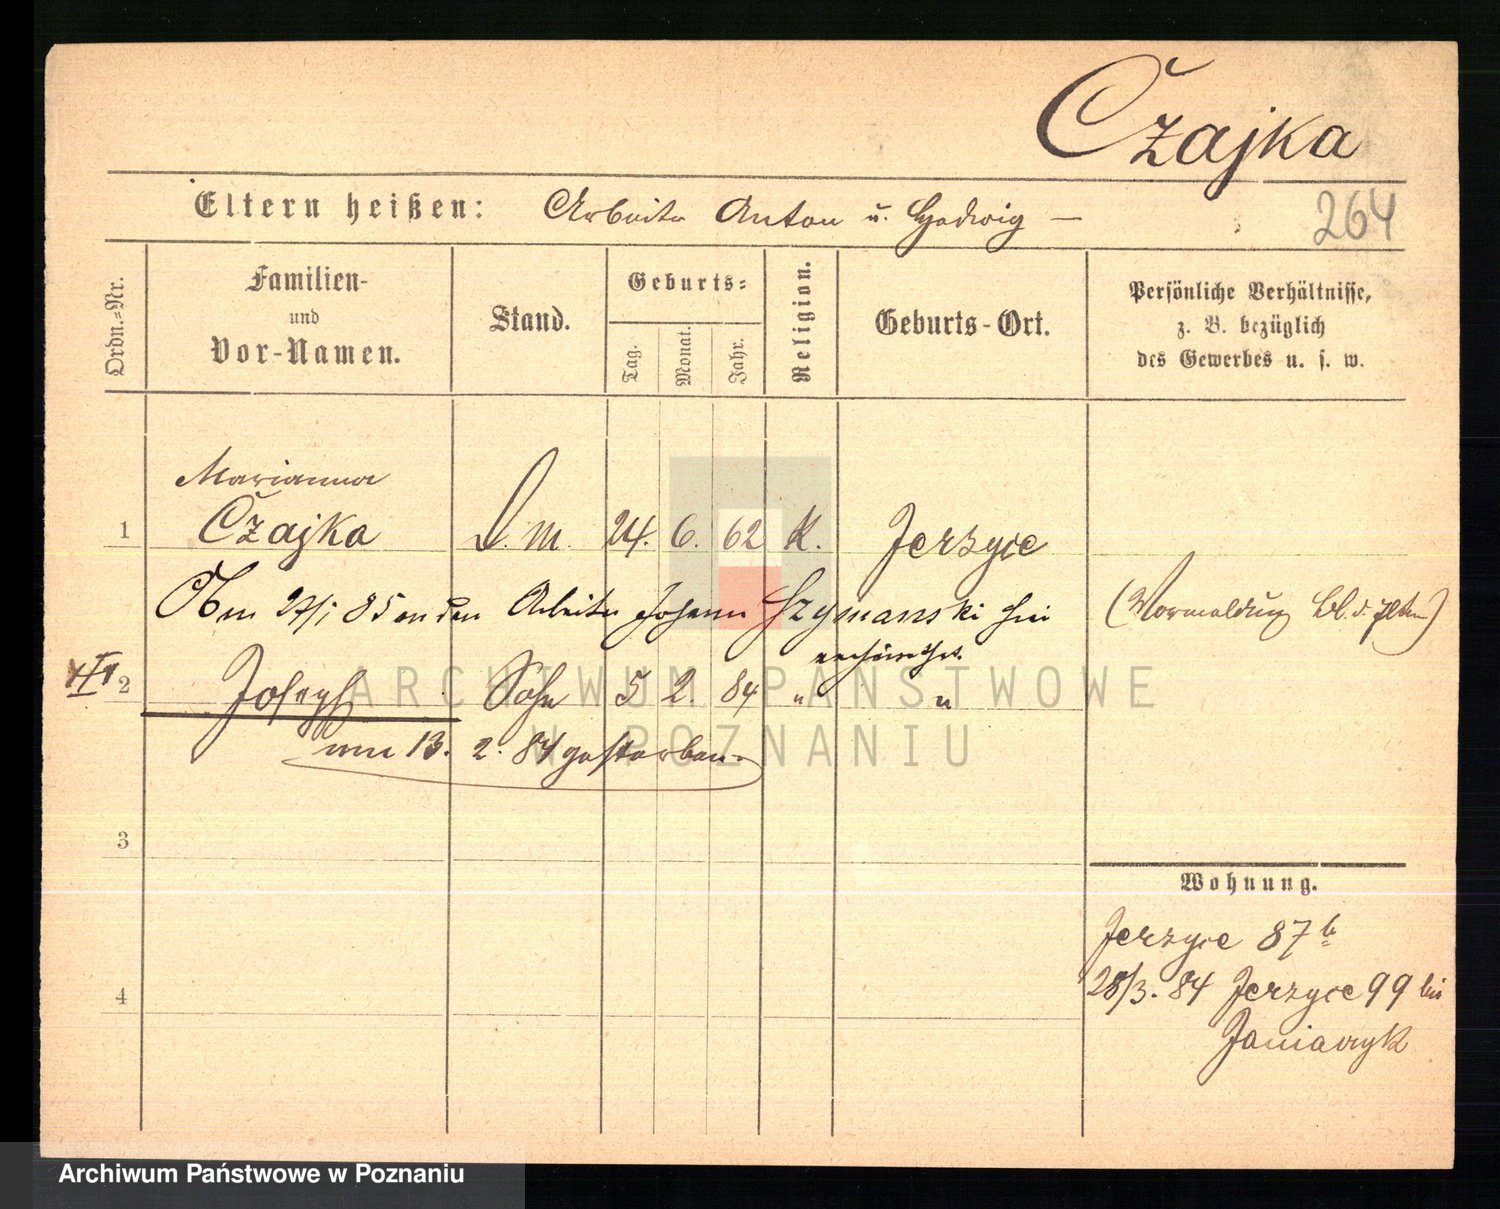 Czajka
Eltern heißen: Arbeiter Anton u. Hedwig —
264
Ordn.-Nr.
Familien-
und
Vor-Namen.
Stand.
Geburts-
Tag.
Monat.
Jahr.
Religion.
Geburts-Ort.
Persönliche Verhältnisse,
z. B. bezüglich
des Gewerbes u. s. w.
Marianna
1 Czajka D. M. 24. 6. 62 K. Jerzyce
Am 27/1 85 an den Arbeiter Johann Szymanski hier
verheirathet.
2 Joseph Sohn 5 2. 84 " "
am 13. 2. 84 gestorben.
3
4
Wohnung.
Jerzyce 87 b
28/3. 84 Jerzyce 99 bei
ARCHIWUM PAŃSTWOWE
W POZNANIU
Archiwum Państwowe w Poznaniu